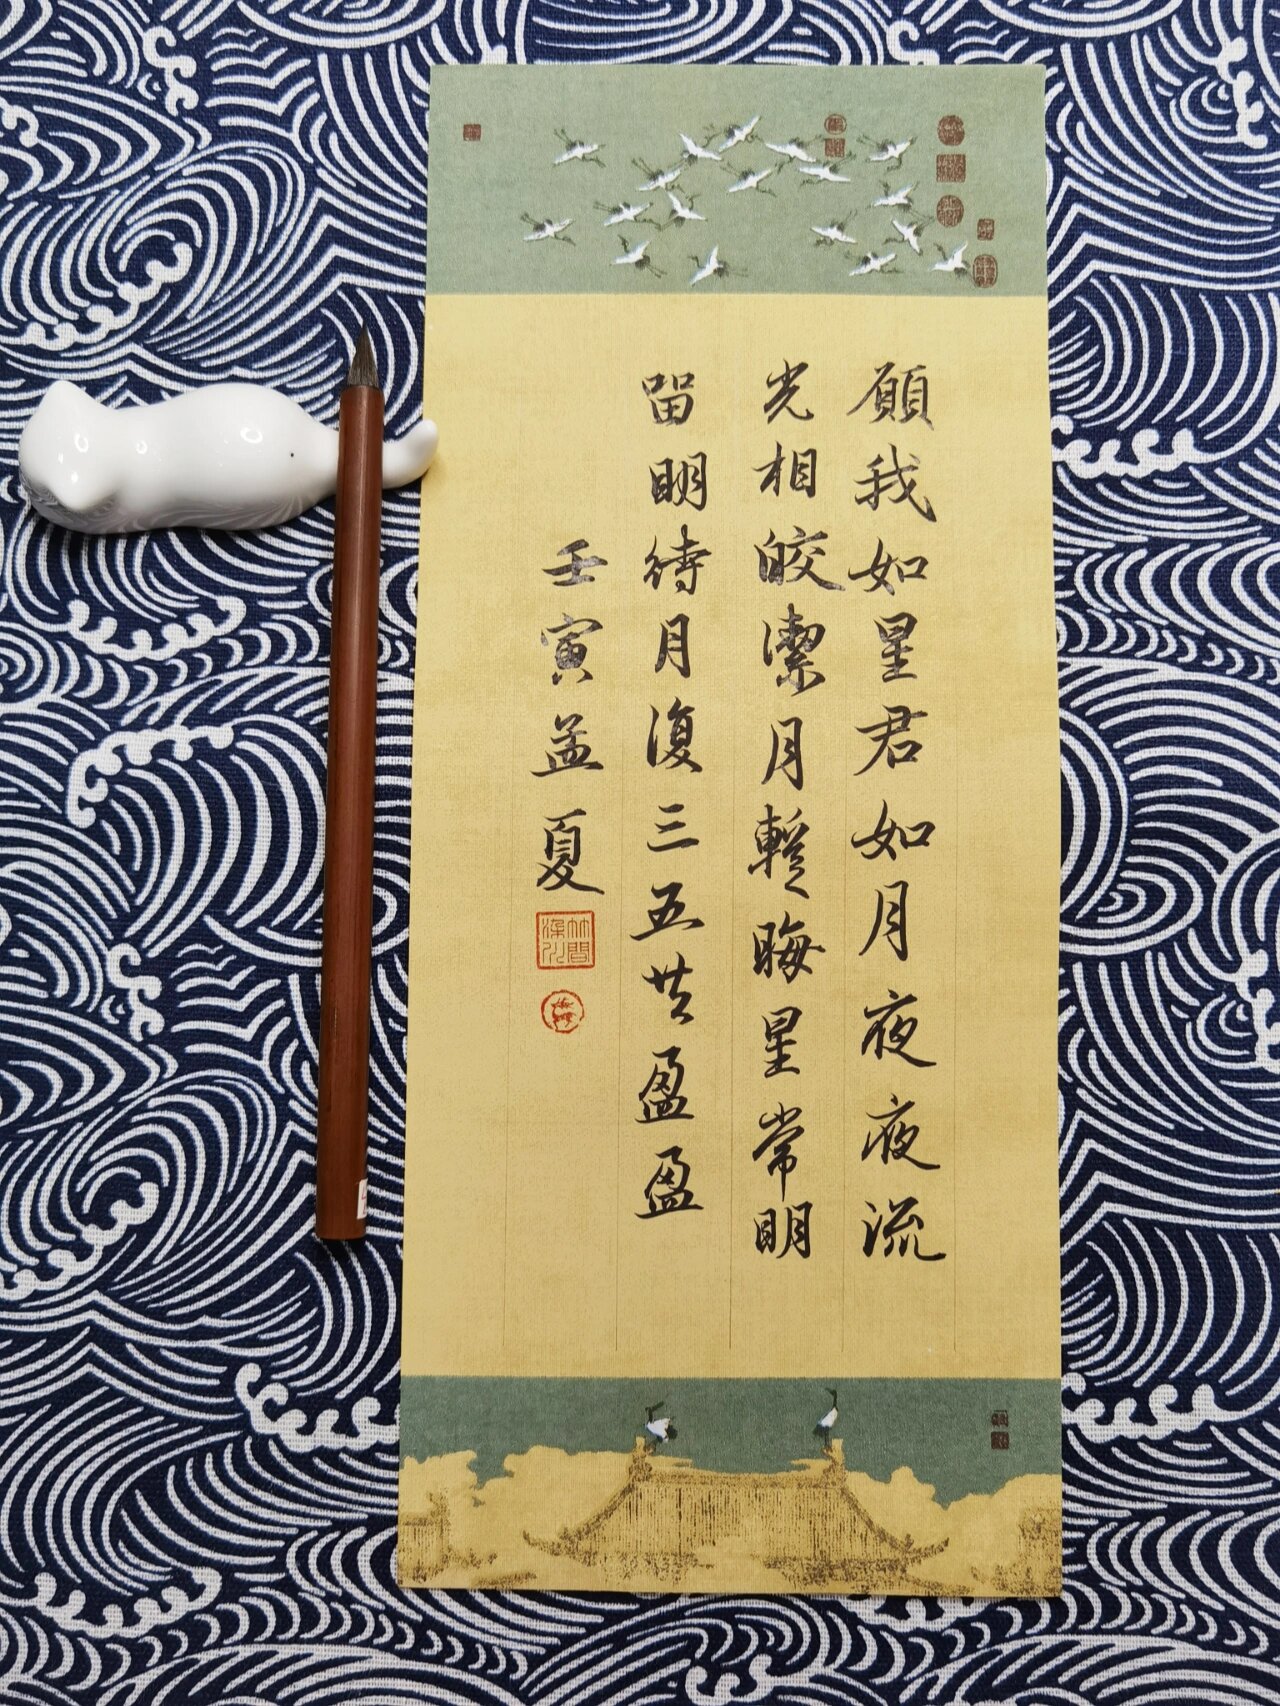 願我如星君如月夜夜流
光相皎潔月暫晦星常明
留明待月復三五共盈盈
壬寅孟夏